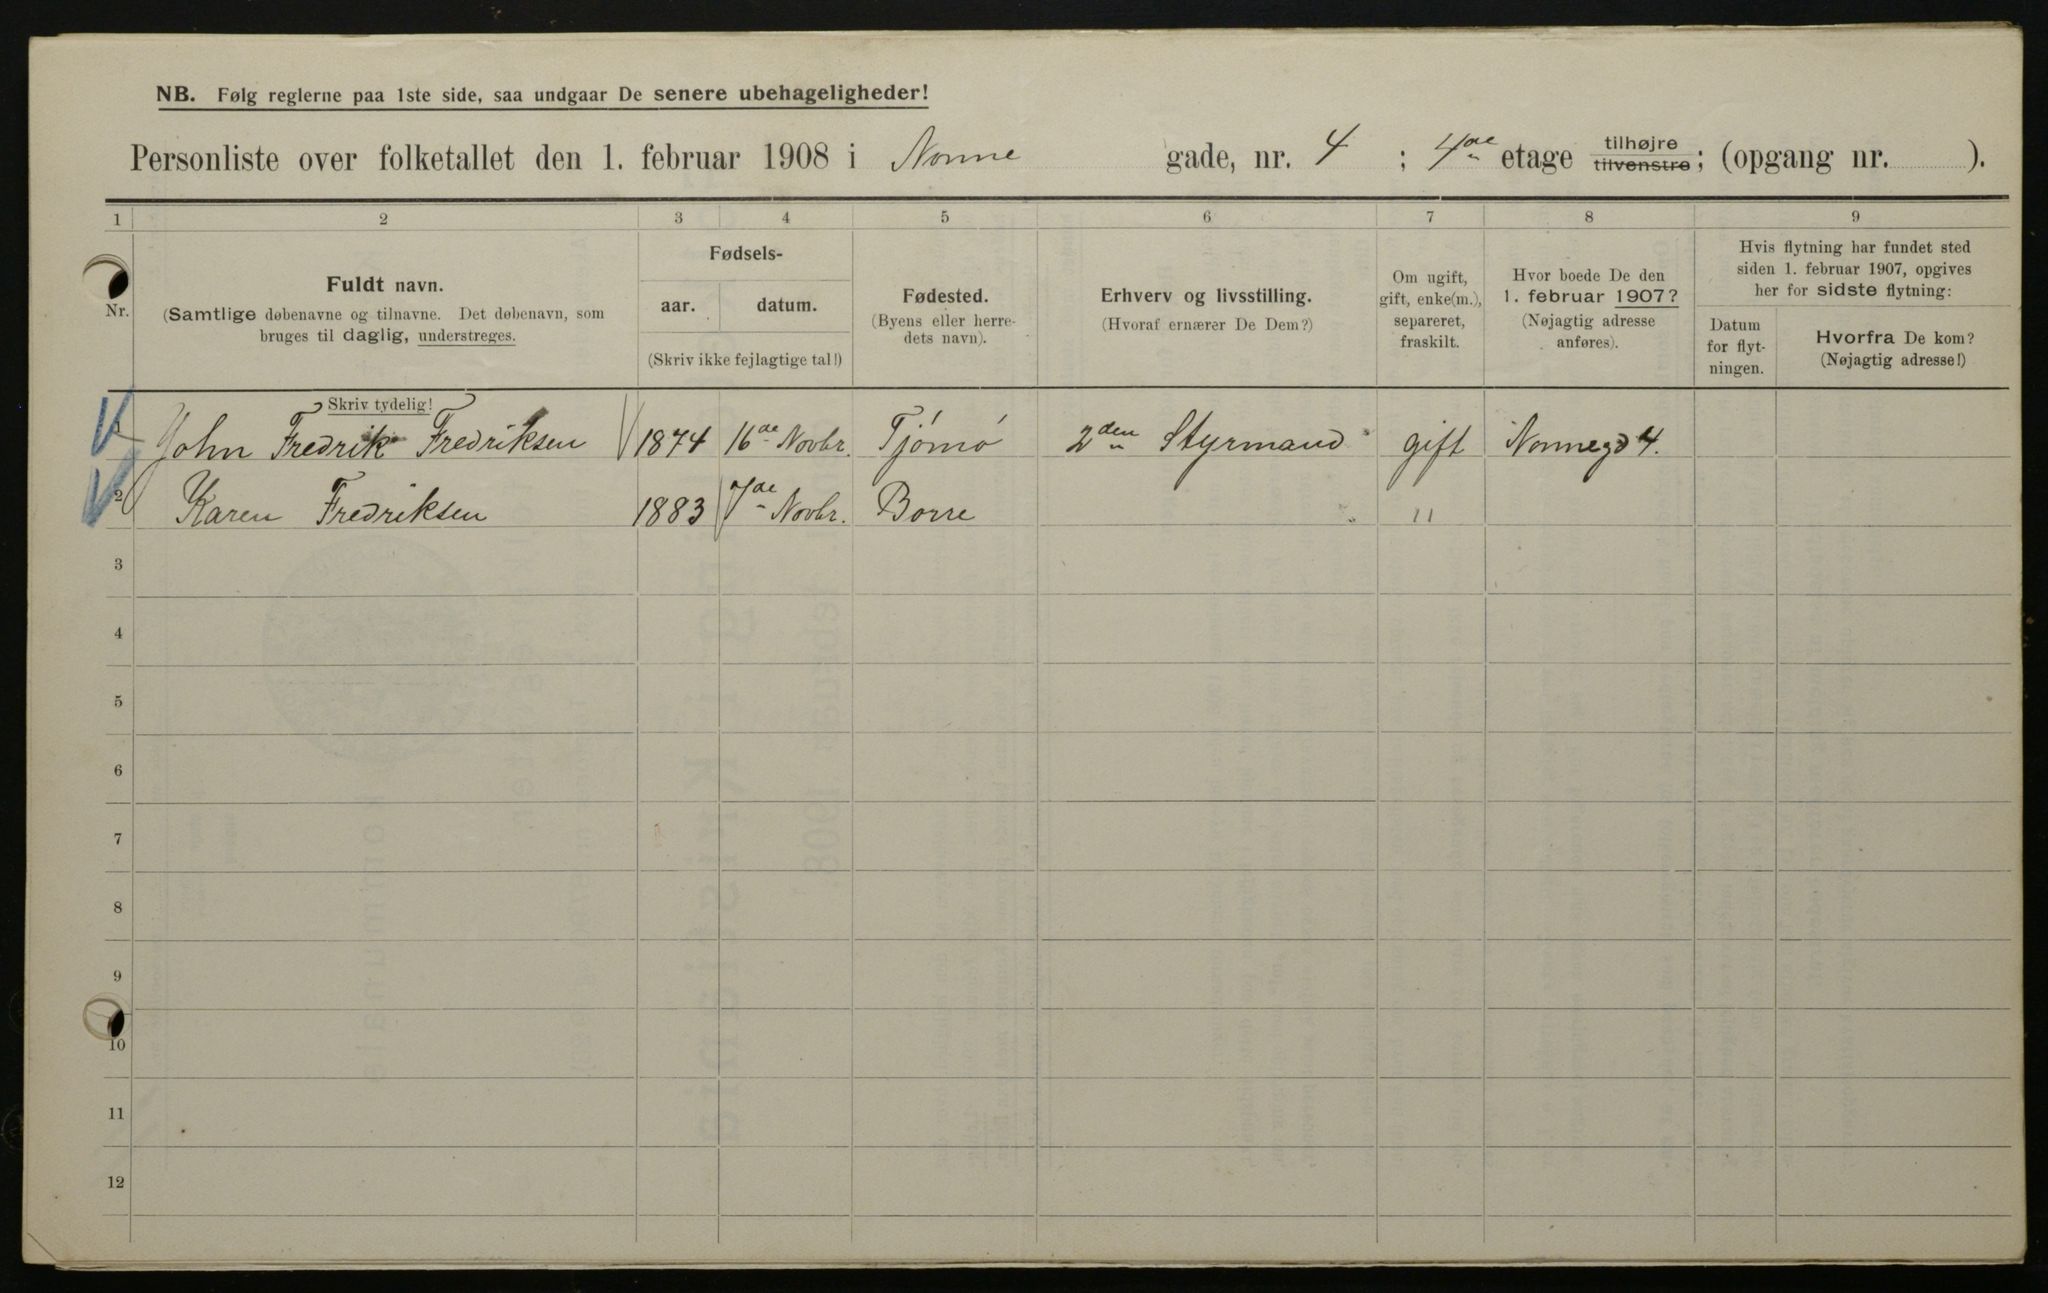 NB. Følg reglerne paa 1ste side, saa undgaar De senere ubehageligheder!
Personliste over folketallet den 1. februar 1908 i Nonne gade, nr. 4 ; 4de etage tilhøjre tilvenstre; (opgang nr. ).
1 2 3 4 5 6 7 8 9
Nr.
Fuldt navn.
(Samtlige døbenavne og tilnavne. Det døbenavn, som
bruges til daglig, understreges.
Fødsels-
aar. datum.
(Skriv ikke fejlagtige tal!)
Fødested.
(Byens eller herre-
dets navn).
Erhverv og livsstilling.
(Hvoraf ernærer De Dem?)
Om ugift,
gift, enke(m.),
separeret,
fraskilt.
Hvor boede De den
1. februar 1907?
(Nøjagtig adresse
anføres).
Hvis flytning har fundet sted
siden 1. februar 1907, opgives
her for sidste flytning:
Datum
for flyt-
ningen.
Hvorfra De kom?
(Nøjagtig adresse!)
Skriv tydelig!
1 John Fredrik Fredriksen 1874 16de Novbr. Tjømø 2den Styrmand gift Nonnegd 4.
2 Karen Fredriksen 1883 7de Novbr. Borre "
3
4
5
6
7
8
9
10
11
12